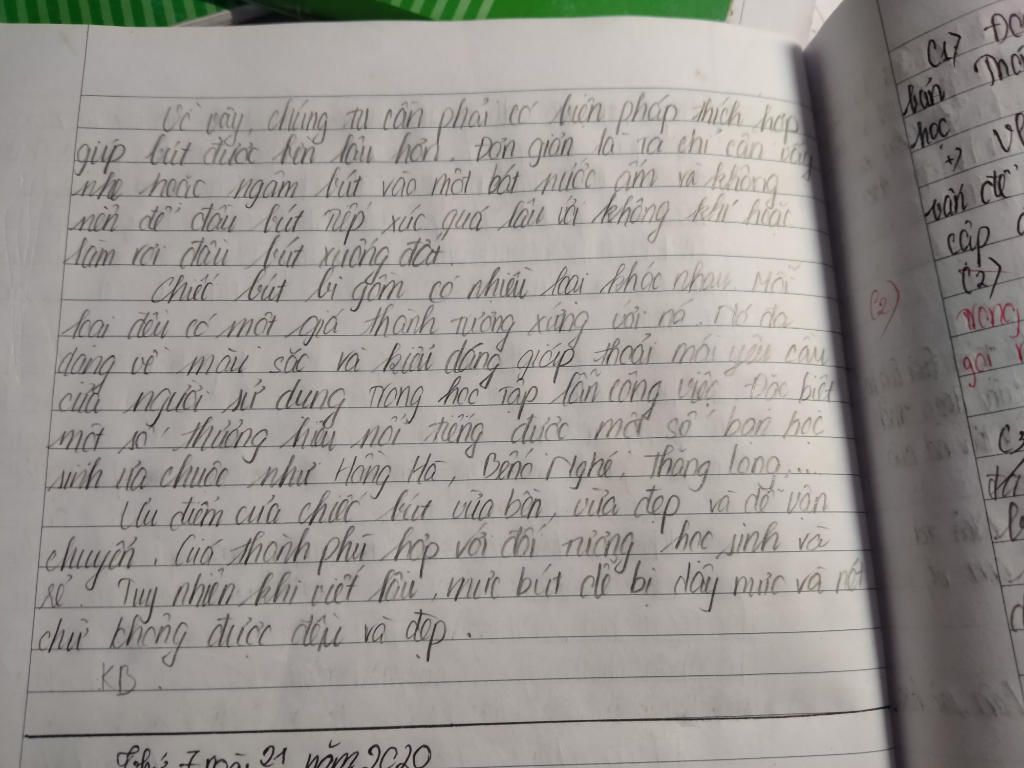 Vì vậy, chúng ta cần phải có biện pháp thích hợp
giúp bút được bền lâu hơn. Đơn giản là ta chỉ cần vẩy
nhẹ hoặc ngâm bút vào một bát nước ấm và không
nên để đầu bút tiếp xúc quá lâu với không khí hoặc
làm rơi đầu bút xuống đất
Chiếc bút bi gồm có nhiều loại khác nhau. Mỗi
loại đều có một giá thành tương xứng với nó. Nó đa
dạng về màu sắc và kiểu dáng giúp thoải mái yêu cầu
của người sử dụng trong học tập lẫn công việc. Đặc biệt
một số thương hiệu nổi tiếng được một số bạn học
sinh ưa chuộc như Hồng Hà, Bến Nghé, Thăng Long...
Ưu điểm của chiếc bút vừa bền, vừa đẹp và dễ vận
chuyển. Giá thành phù hợp với đối tượng học sinh và
rẻ. Tuy nhiên khi viết lâu, mực bút dễ bị dây mực và nét
chữ không được đều và đẹp.
KB.
năm 2020
C1)
bán
học
+)
vấn đề
cấp
C2)
C2)
trong